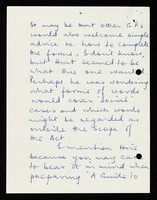 So may be that other G.Ps
would also welcome simple
advice re how to complete
the forms, I don't know,
but that seemed to be
what this one wanted.
Perhaps he was wondering
what forms of words
would cover 'social'
cases and which words
might be regarded as
outside the scope of
the Act.
I mention this
because you may care
to bear it in mind when
preparing "A Guide to